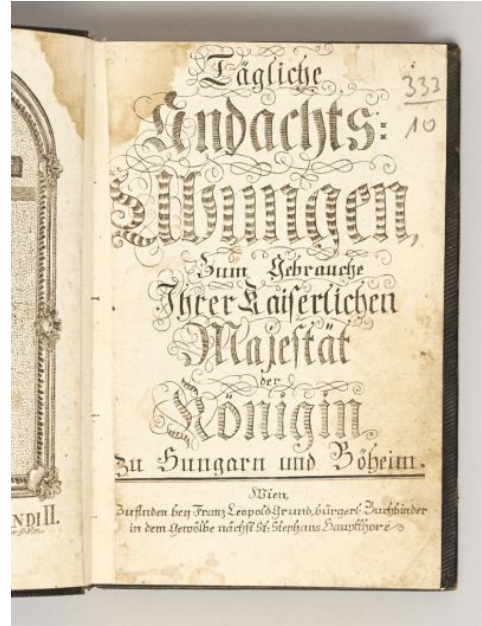 Tägliche
Andachts:
Ubungen,
Zum Gebrauche
Ihrer Kaiserlichen
Majestät
der
Königin
zu Hungarn und Böheim.
Wien,
Zu finden bey Franz Leopold Grund, bürgerl. Buchbinder
in dem Gewölbe nächst St: Stephans Hauptthore
333
10
NDI II.